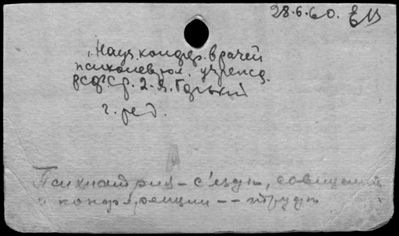 28.6.60.
Науч. конфер. врачей
психоневрол. учрежд.
РСФСР. 2-я. Горький
г. ред.
Психиатрия – съезды, совещания
и конференции -- труды